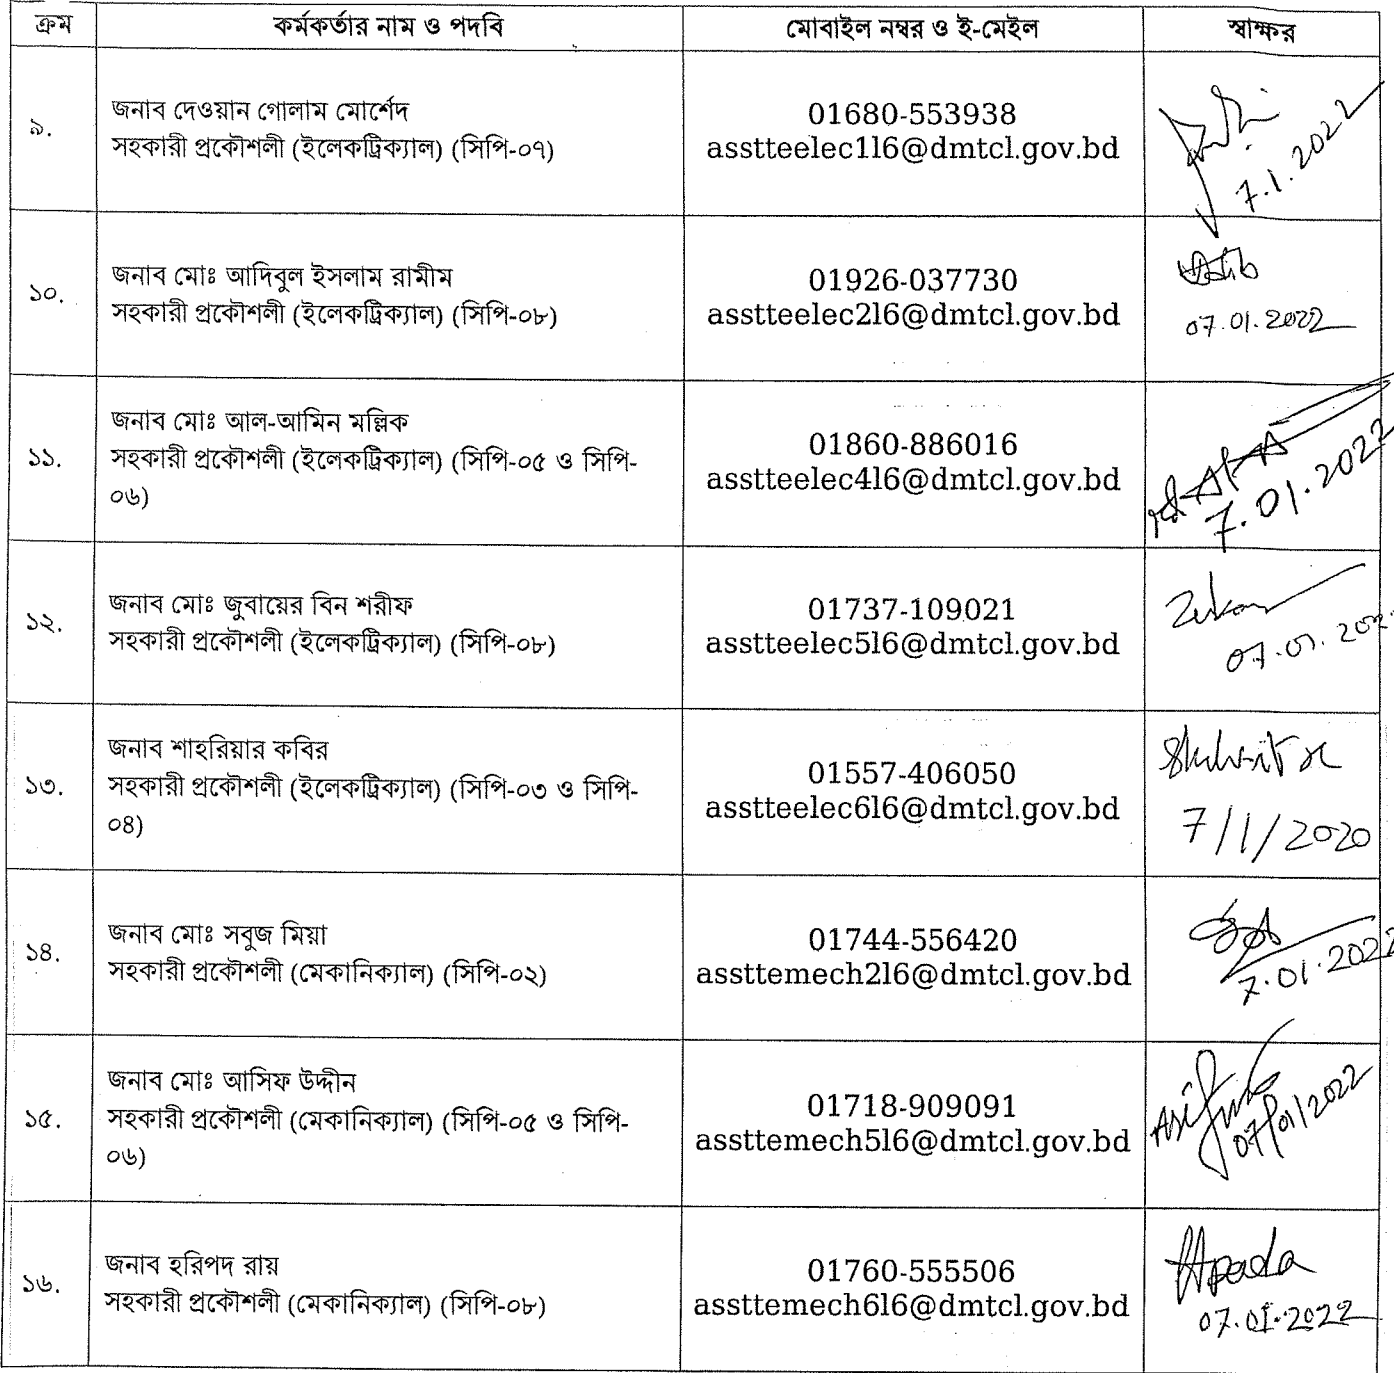 ক্রম কর্মকর্তার নাম ও পদবি মোবাইল নম্বর ও ই-মেইল স্বাক্ষর
৯.
জনাব দেওয়ান গোলাম মোর্শেদ
সহকারী প্রকৌশলী (ইলেকট্রিক্যাল) (সিপি-০৭)
01680-553938
asstteelec1l6@dmtcl.gov.bd
7.1.2022
১০.
জনাব মোঃ আদিবুল ইসলাম রামীম
সহকারী প্রকৌশলী (ইলেকট্রিক্যাল) (সিপি-০৮)
01926-037730
asstteelec2l6@dmtcl.gov.bd
07.01.2022
১১.
জনাব মোঃ আল-আমিন মল্লিক
সহকারী প্রকৌশলী (ইলেকট্রিক্যাল) (সিপি-০৫ ও সিপি-
০৬)
01860-886016
asstteelec4l6@dmtcl.gov.bd
7.01.2022
১২.
জনাব মোঃ জুবায়ের বিন শরীফ
সহকারী প্রকৌশলী (ইলেকট্রিক্যাল) (সিপি-০৮)
01737-109021
asstteelec5l6@dmtcl.gov.bd
১৩.
জনাব শাহরিয়ার কবির
সহকারী প্রকৌশলী (ইলেকট্রিক্যাল) (সিপি-০৩ ও সিপি-
০৪)
01557-406050
asstteelec6l6@dmtcl.gov.bd
7/1/2020
১৪.
জনাব মোঃ সবুজ মিয়া
সহকারী প্রকৌশলী (মেকানিক্যাল) (সিপি-০২)
01744-556420
assttemech2l6@dmtcl.gov.bd
7.01.2022
১৫.
জনাব মোঃ আসিফ উদ্দীন
সহকারী প্রকৌশলী (মেকানিক্যাল) (সিপি-০৫ ও সিপি-
০৬)
01718-909091
assttemech5l6@dmtcl.gov.bd
07/01/2022
১৬.
জনাব হরিপদ রায়
সহকারী প্রকৌশলী (মেকানিক্যাল) (সিপি-০৮)
01760-555506
assttemech6l6@dmtcl.gov.bd
07.01.2022